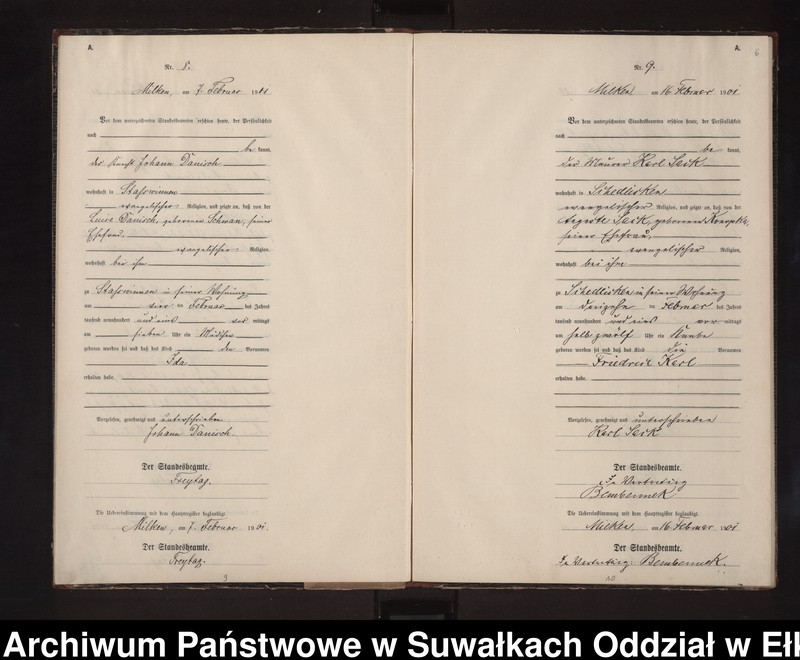 A.
Nr. 8.
Milken, am 7. Februar 1901
Vor dem unterzeichneten Standesbeamten erschien heute, der Persönlichkeit
nach
be kannt,
der Johann Danisch
wohnhaft in Staswinnen
evangelischer Religion, und zeigte an, daß von der
Luise Danisch, geborenen Schwan, seiner
Ehefrau,
evangelischer Religion,
wohnhaft bei ihm
zu Staswinnen in seiner Wohnung
am vier ten Februar des Jahres
tausend neunhundert und eins vor mittags
um sieben Uhr ein Mädchen
geboren worden sei und daß das Kind den Vornamen
Ida
erhalten habe.
Vorgelesen, genehmigt und unterschrieben
Johann Danisch.
Der Standesbeamte.
Freytag.
Die Uebereinstimmung mit dem Hauptregister beglaubigt.
Milken, am 7. Februar 1901.
Der Standesbeamte.
Freytag.
9
A.
6
Nr. 9.
Milken am 16 Februar 1901
Vor dem unterzeichneten Standesbeamten erschien heute, der Persönlichkeit
nach
be kannt,
der Maurer Karl Seik
wohnhaft in Sczedlisken
evangelischer Religion, und zeigte an, daß von der
Auguste Seik, geborenen Konopka,
seiner Ehefrau,
evangelischer Religion,
wohnhaft bei ihm
zu Sczedlisken in seiner Wohnung
am dreizehn ten Februar des Jahres
tausend neunhundert und eins vor mittags
um halb zwölf Uhr ein Knabe
geboren worden sei und daß das Kind die Vornamen
Friedrich Karl
erhalten habe.
Vorgelesen, genehmigt und unterschrieben
Karl Seik
Der Standesbeamte.
In Vertretung
Bembennek
Die Uebereinstimmung mit dem Hauptregister beglaubigt.
Milken, am 16 Februar 1901
Der Standesbeamte.
In Vertretung: Bembennek.
10
Archiwum Państwowe w Suwałkach Oddział w Ełk